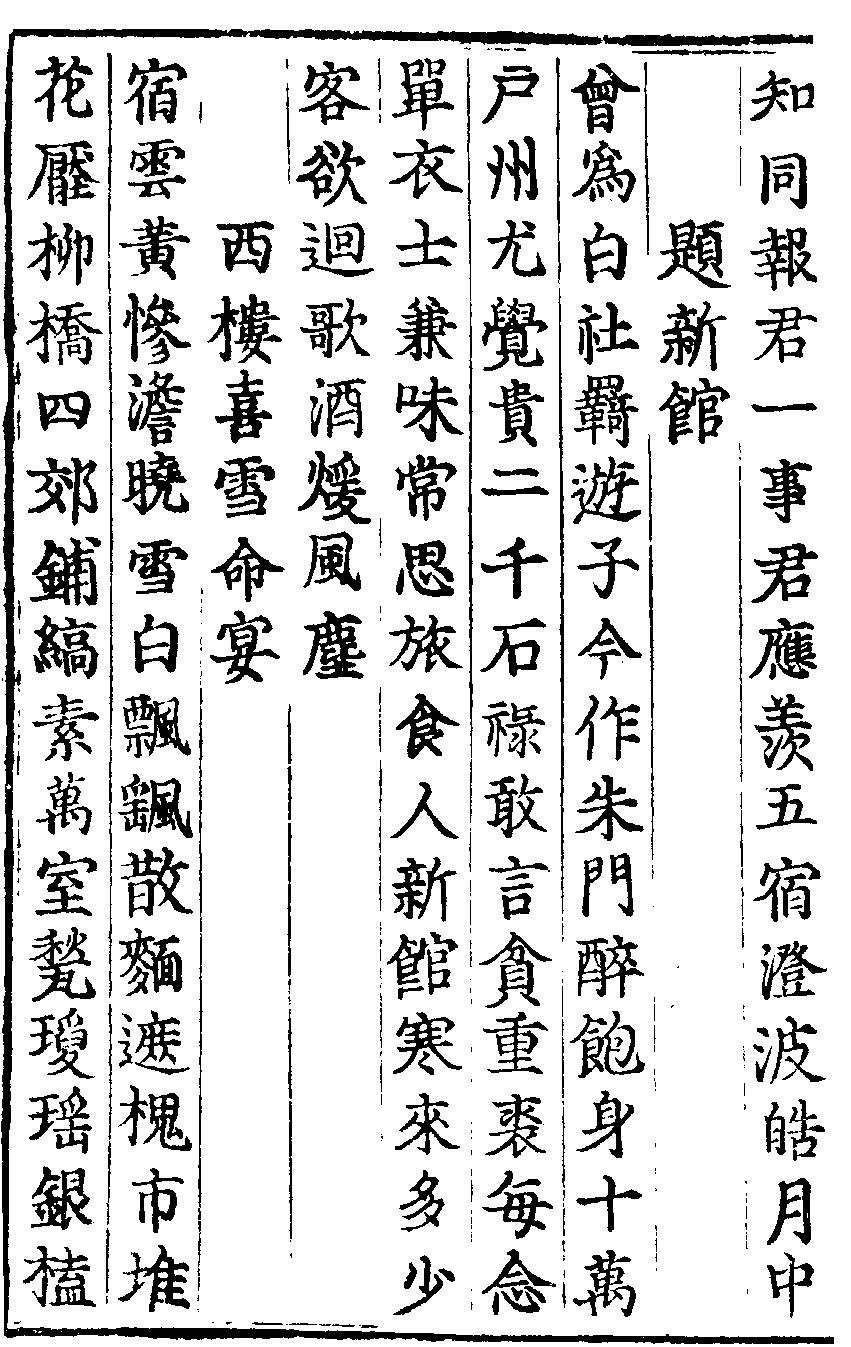 知同報君一事君應羨五宿澄波皓月中
題新館
曾爲白社羇遊子今作朱門醉飽身十萬
戶州尤覺貴二千石祿敢言貧重裘每念
單衣士兼味常思旅食人新館寒來多少
客欲迴歌酒煖風塵
西樓喜雪命宴
宿雲黃慘澹曉雪白飄颻散麵遮槐市堆
花壓柳橋四郊鋪縞素萬室甃瓊瑤銀榼